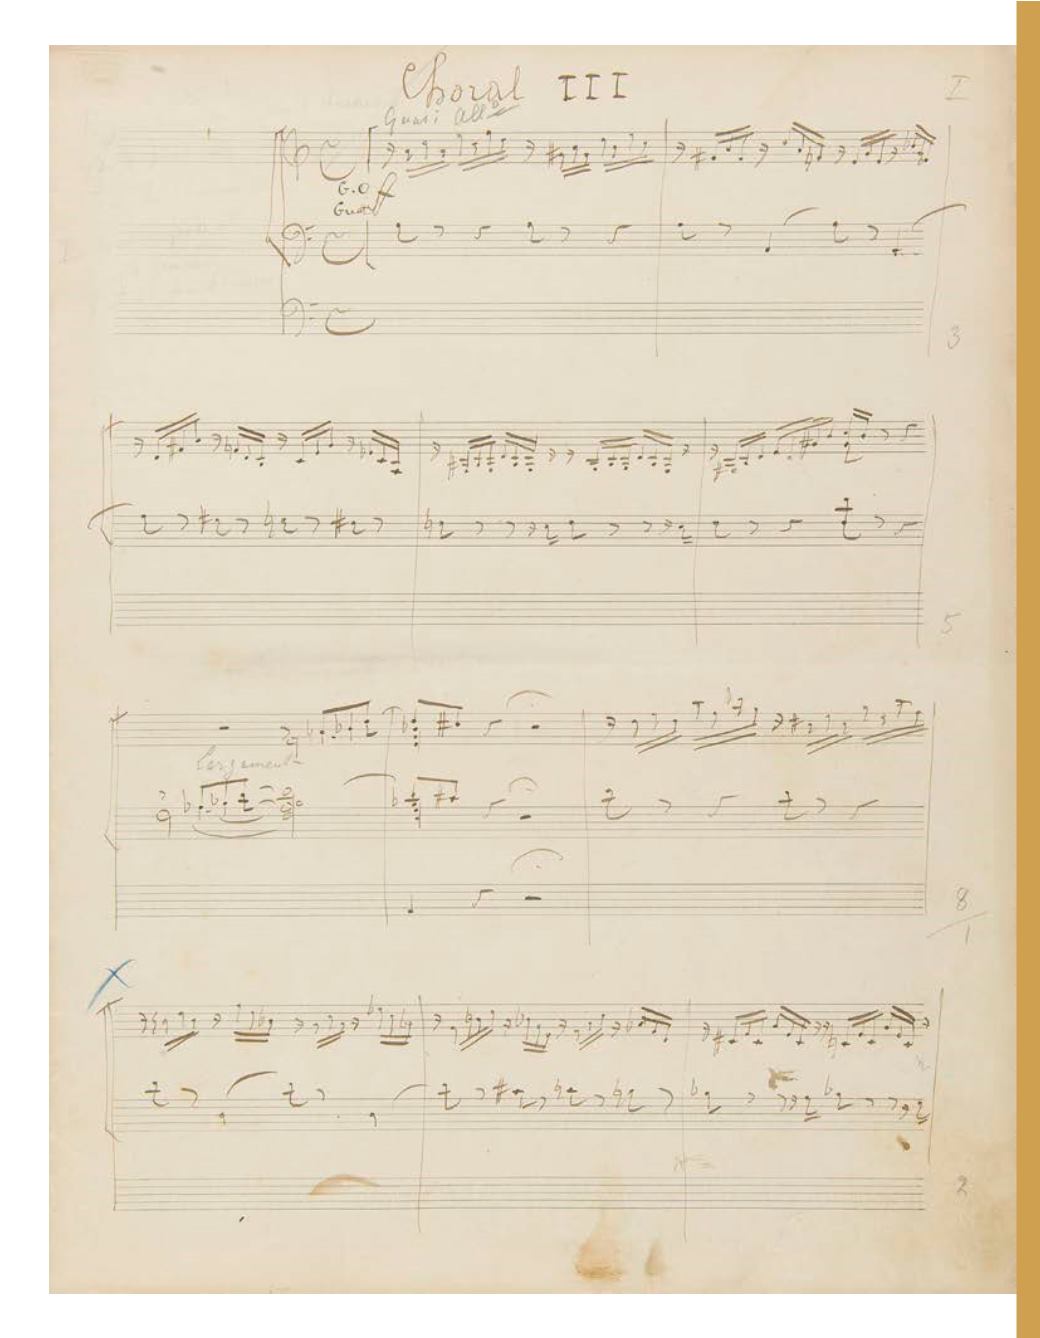 Choral III
I
Quasi Allo
G.O ff
3
5
Largamente
8
1
X
2